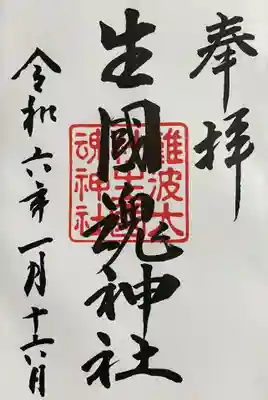 奉拝
生國魂神社
難波大社生國魂神社
令和六年一月十六日